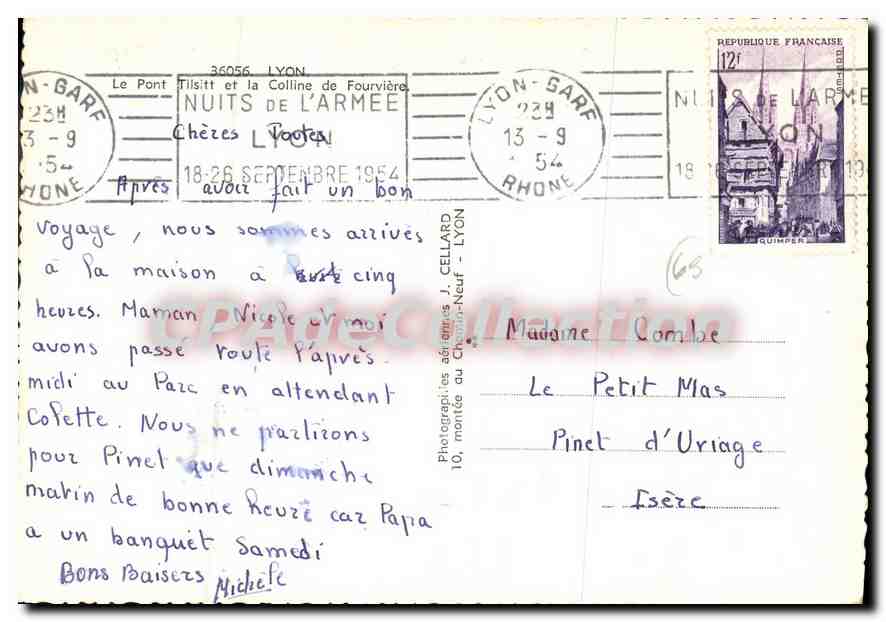 36056. LYON.
Le Pont Tilsitt et la Colline de Fourvière.
LYON-GARE
23H
13 - 9
54
RHONE
NUITS DE L'ARMEE
LYON
18-26 SEPTEMBRE 1954
LYON-GARE
23H
13 - 9
54
RHONE
NUITS DE L'ARMEE
LYON
18-26 SEPTEMBRE 19
REPUBLIQUE FRANÇAISE
12f
POSTES
QUIMPER
Chères Toutes
Après avoir fait un bon
voyage, nous sommes arrivés
à la maison à cinq
heures. Maman, Nicole et moi
avons passé toute l'après-
midi au Parc en attendant
Colette. Nous ne partirons
pour Pinet que dimanche
matin de bonne heure car Papa
a un banquet Samedi
Bons Baisers Michèle
Photographies aériennes J. CELLARD
10, montée du Chemin-Neuf - LYON
(69
Madame Combe
Le Petit Mas
Pinet d'Uriage
Isère
CPAdeCollection